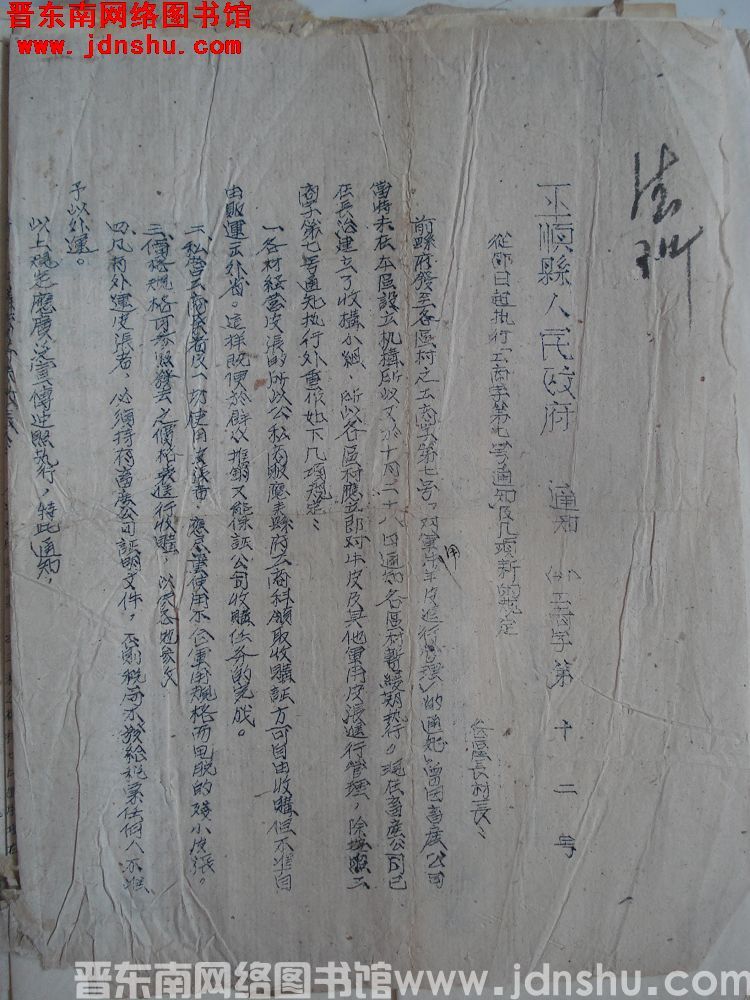 晋东南网络图书馆
www.jdnshu.com
平順縣人民政府 通知 工商字第十二号
從即日起執行工商字第七号通知及几項新的規定
各區長村長：
前縣府發至各區村之工商字第七号“对軍用牛羊皮進行管理”的通知，曾因畜產公司
當時未在本區設立机構所以又於十月二十八日通知各區村暫緩期執行。現在畜產公司已
在長治建立了收構小組，所以各區村應立即对牛皮及其他軍用皮張進行管理，除按照工
商字第七号通知执行外重作如下几項規定：
一各村經营皮張的所以公私商販應來縣府工商科領取收購証方可自由收購但不准自
由販運出外省。這样既便於群众推銷又能保証公司收購任务的完成。
二私营工商業者及一切使用皮張者，應尽量使用不合軍用規格而甩脫的殘小皮張。
三價格規格可参照發去之價格表進行收購，以供各地参攷
四凡村外運皮張者，必須持有畜產公司証明文件，否則税局不發給税票任何人不准
予以外運。
以上規定應廣泛宣傳遵照执行，特此通知，
晋东南网络图书馆www.jdnshu.com